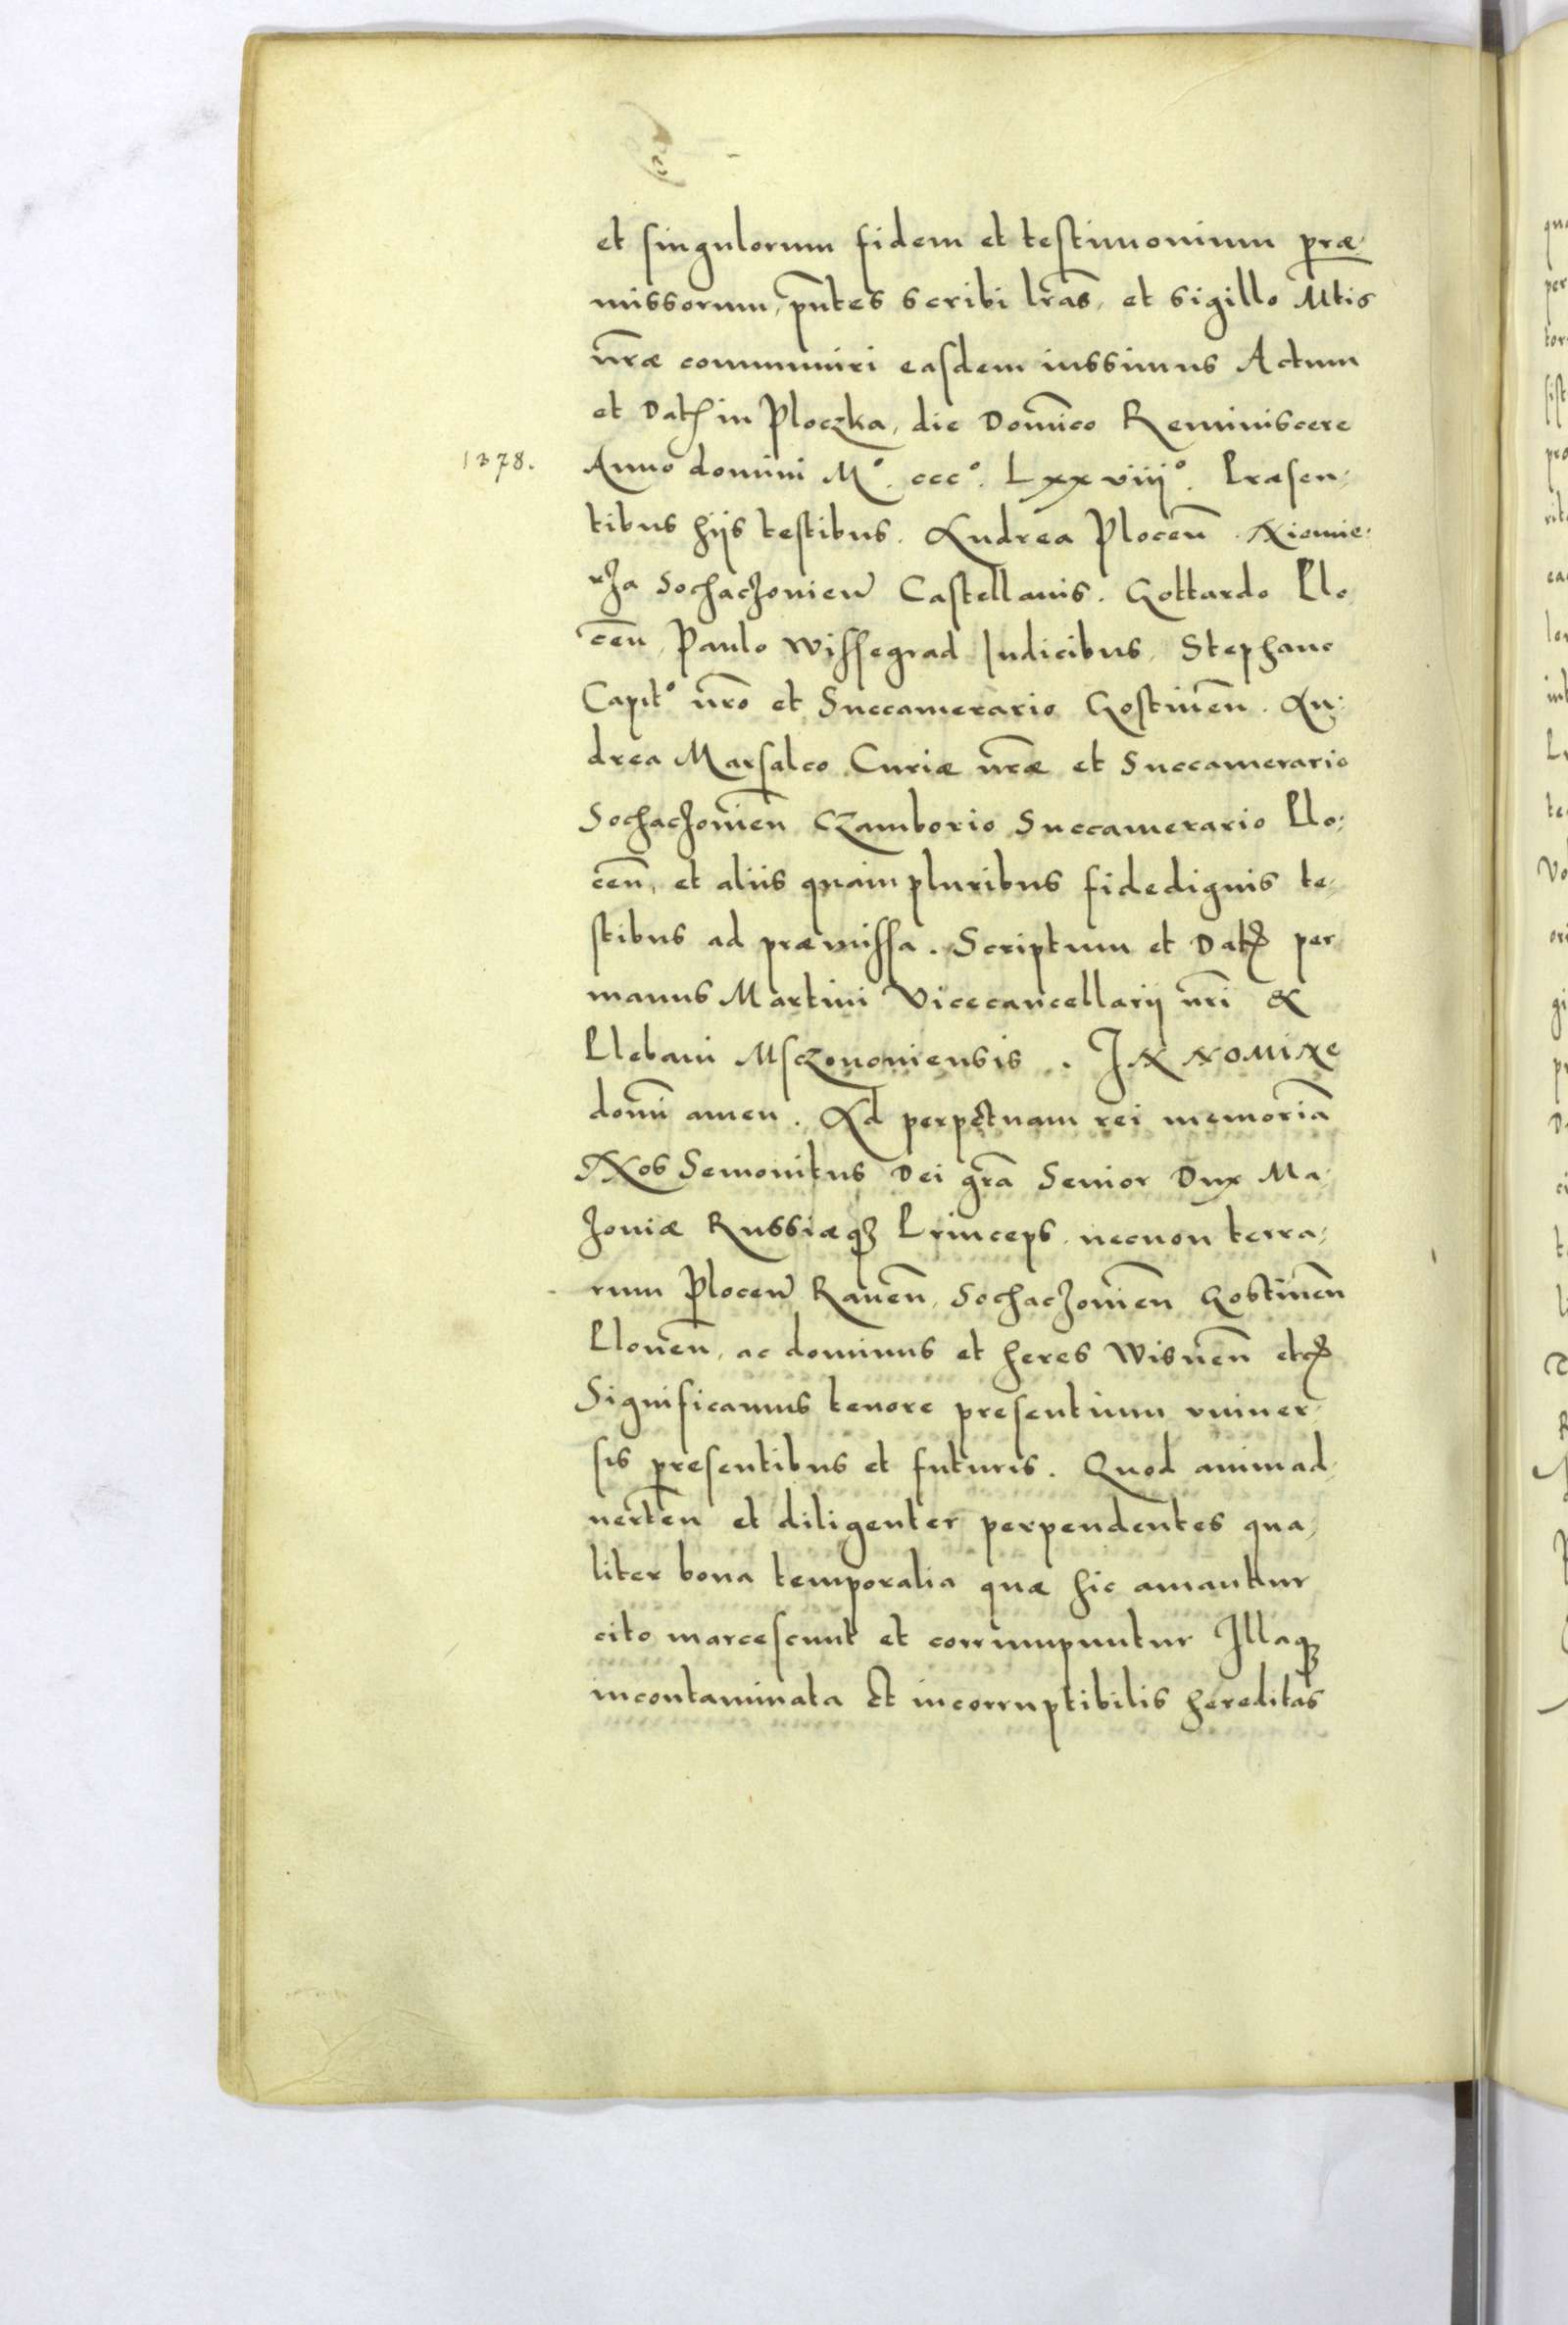 et singulorum fidem et testimonium præ-
missorum, pn̄tes scribi lr̄as, et sigillo Mtis
nr̄æ communiri easdem iussimus Actum
et Dat in Ploczka, die Domīco Reminiscere
1378. Anno domini M°. ccc°. Lxxviij°. Præsen-
tibus hijs testibus. Andrea Plocen̄ Niemie-
rza Sochaczouien̄ Castellanis. Gottardo Plo
cen̄, Paulo Wissegrad Iudicibus, Stephano
Capit° nr̄o et Succamerario Gostinen̄. An-
drea Marsalco Curiæ nr̄æ et Succamerario
Sochaczouien̄ Czamborio Succamerario Plo-
cen̄, et aliis quampluribus fidedignis te-
stibus ad præmissa. Scriptum et Dat per
manus Martini Vicecancellarij nr̄i &
Plebani Msczonouiensis. IN NOMINE
domī amen. Ad perpetuam rei memoriā
Nos Semouitus Dei gr̄a Senior Dux Ma-
zouiæ Russiæq3 Princeps, necnon terra-
rum Plocen̄ Rauen̄, Sochaczouien̄ Gostinen̄
Plonen̄, ac dominus et heres Wisnen̄ etc
Significamus tenore presentium vniuer-
sis presentibus et futuris. Quod animad-
uerten̄ et diligenter perpendentes qua-
liter bona temporalia quæ hic amantur
cito marcescunt et corrumpuntur Illaq3
incontaminata et incorruptibilis hereditas